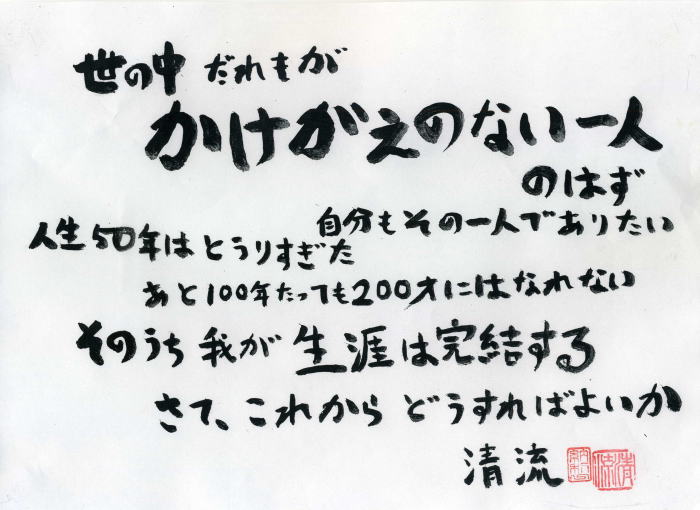 世の中 だれもが
かけがえのない一人
のはず
自分もその一人でありたい
人生50年はとうりすぎた
あと100年たっても200才にはなれない
そのうち 我が 生涯は完結する
さて、これから どうすればよいか
清流